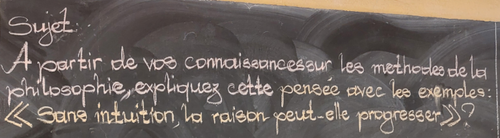 Sujet:
A partir de vos connaissances sur les méthodes de la
philosophie, expliquez cette pensée avec les exemples:
« Sans intuition, la raison peut-elle progresser »?